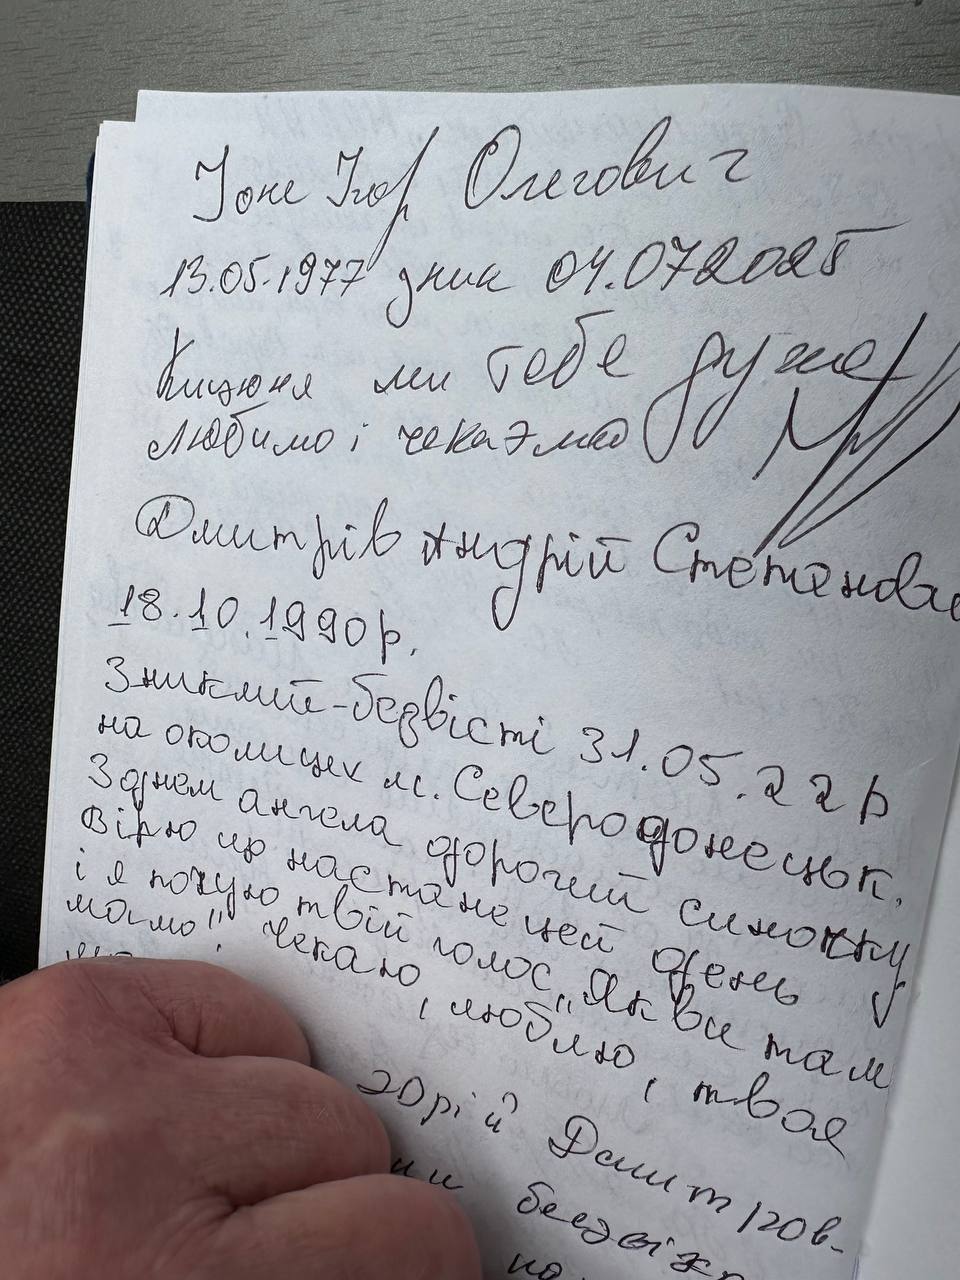 Іоне Ігор Олегович
13.05.1977 зник 04.07.2025
Кицюня ми тебе дуже
любимо і чекаэмо
Дмитрів Андрій Степанови
18.10.1990р.
Зниклий-безвісті 31.05.22р
на околицях м. Северодонецьк.
З днем ангела дорогий синочку
Вірю що настане цей день
і я почую твій голос „Як ви там
мамо" Чекаю, люблю, твоя
Юрій Дмитров-